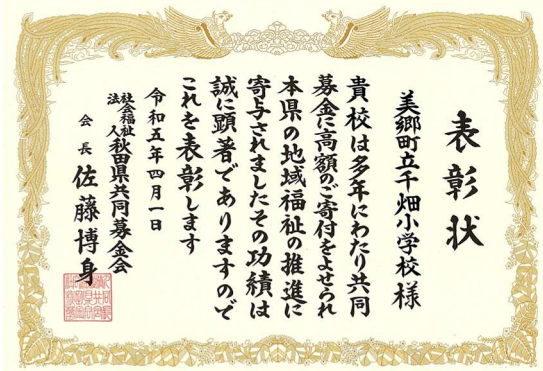 表彰状
美郷町立千畑小学校様
貴校は多年にわたり共同
募金に高額のご寄付をよせられ
本県の地域福祉の推進に
寄与されましたその功績は
誠に顕著でありますので
これを表彰します
令和五年四月一日
社会福祉法人秋田県共同募金会
会長 佐藤博身